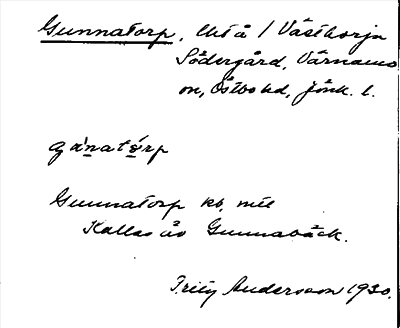 Gunnatorp, lht å 1 Västhorja
Södergård, Värnamo
sn, Östbo hd, Jönk. l.
gǝnatǝrp
Gunnatorp kb, men
Kallas äv Gunnabäck.
Frity Andersson 1930.